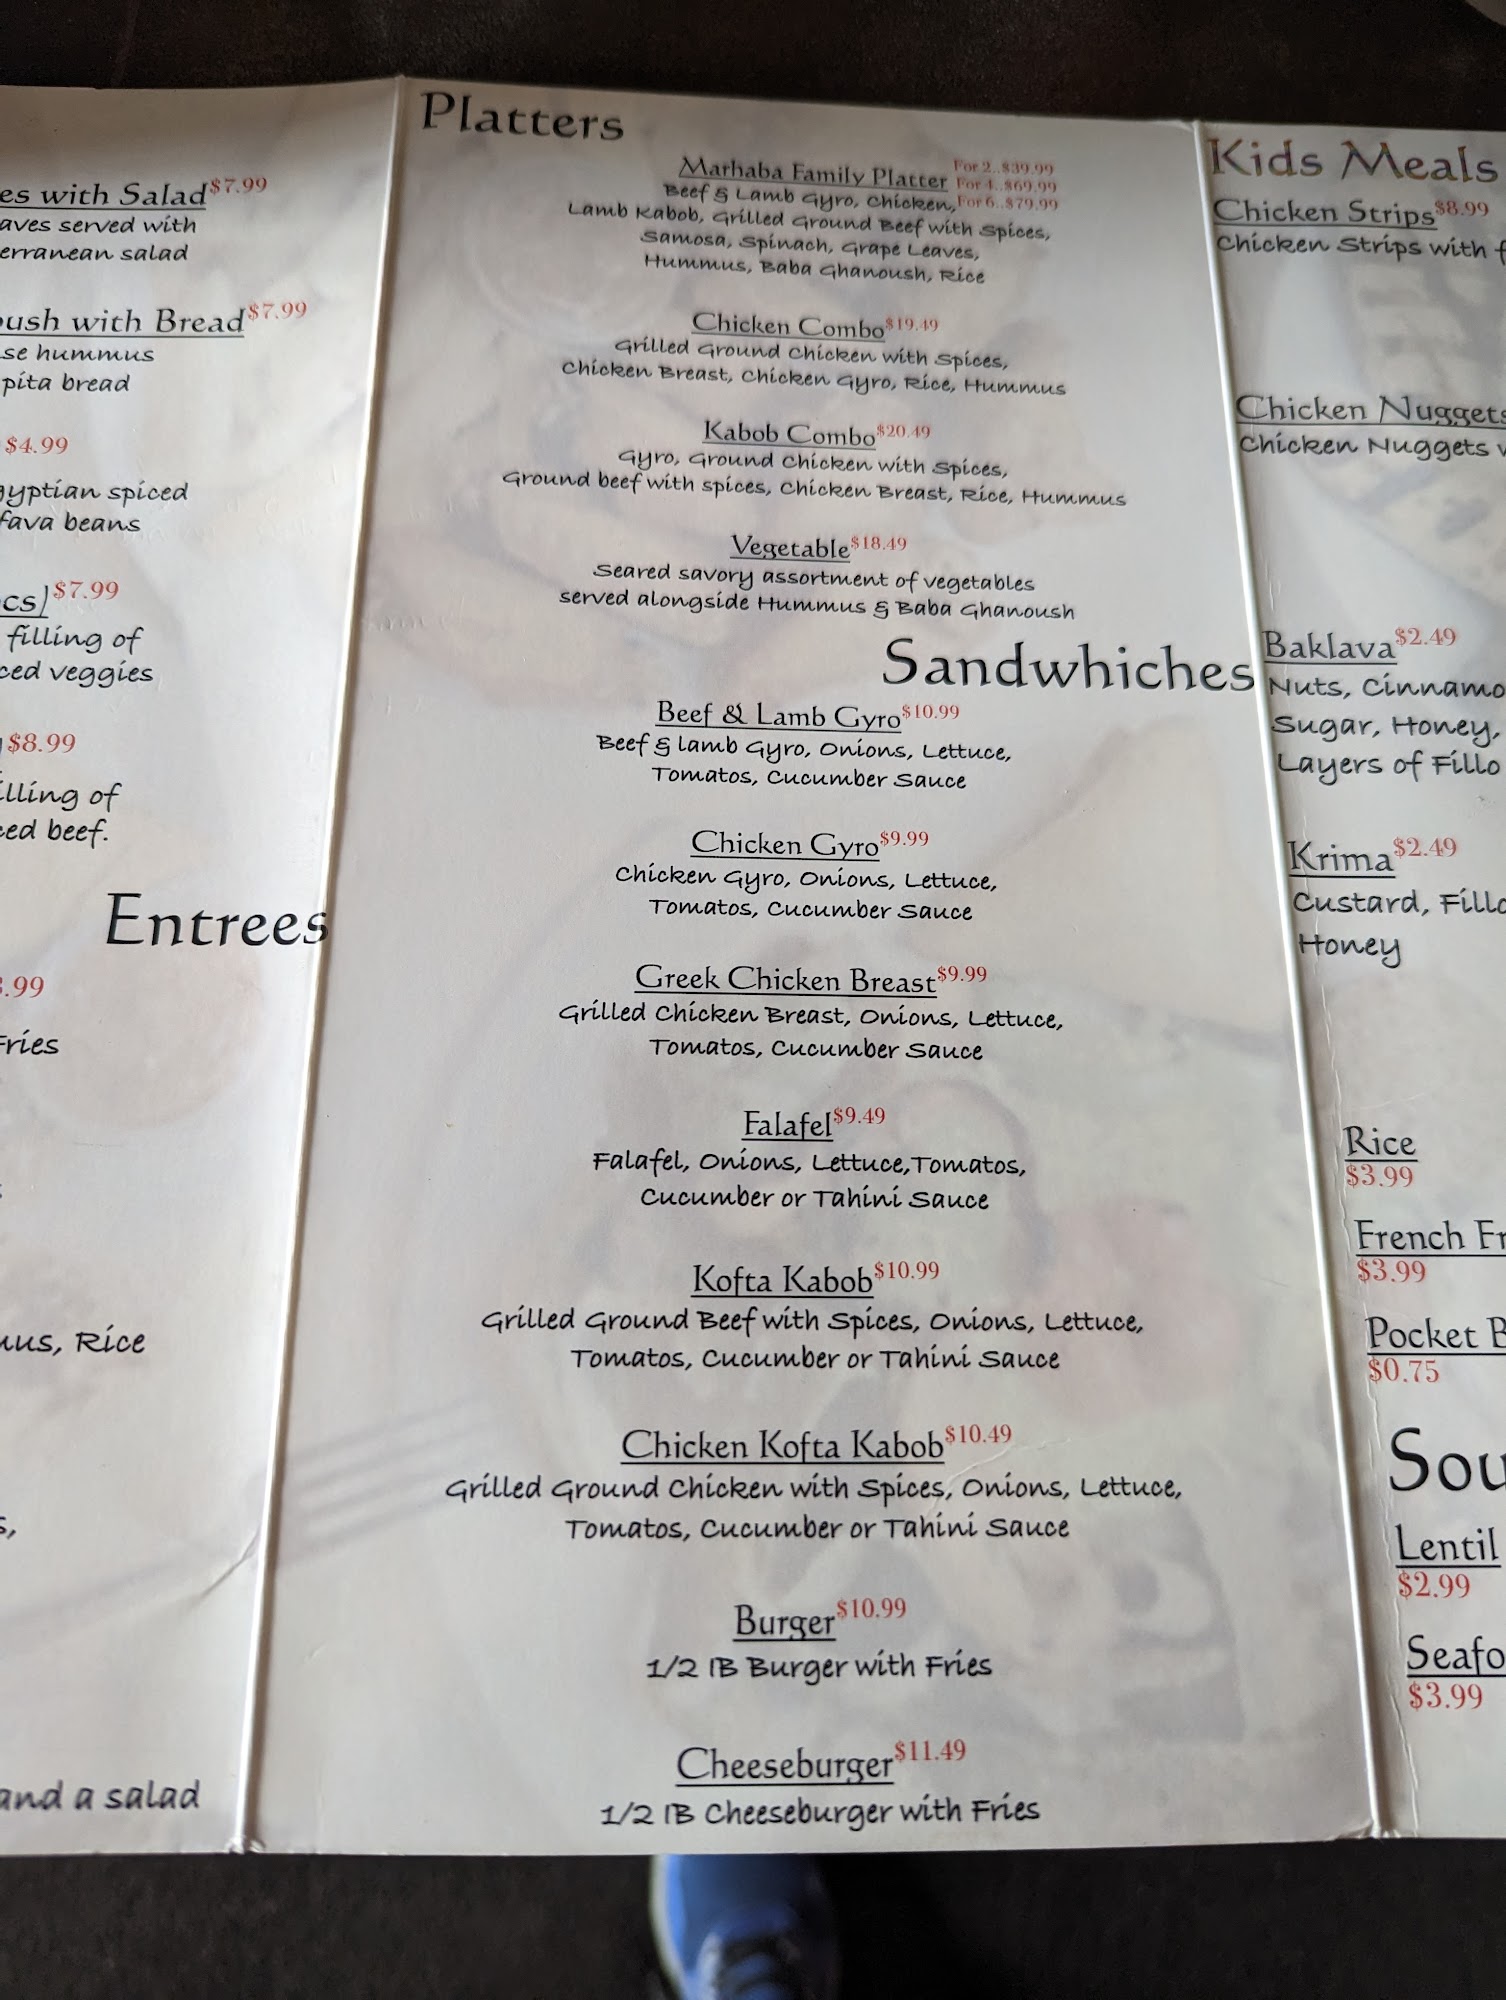 es with Salad $7.99
aves served with
erranean salad
oush with Bread $7.99
se hummus
pita bread
$4.99
gyptian spiced
fava beans
cs) $7.99
filling of
ced veggies
$8.99
illing of
ced beef.
Entrees
.99
Fries
mus, Rice
and a salad
Platters
Marhaba Family Platter For 2..$39.99
For 4..$69.99
For 6..$79.99
Beef & Lamb Gyro, Chicken,
Lamb Kabob, Grilled Ground Beef with Spices,
Samosa, Spinach, Grape Leaves,
Hummus, Baba Ghanoush, Rice
Chicken Combo $19.49
Grilled Ground Chicken with Spices,
Chicken Breast, Chicken Gyro, Rice, Hummus
Kabob Combo $20.49
Gyro, Ground Chicken with Spices,
Ground beef with spices, Chicken Breast, Rice, Hummus
Vegetable $18.49
Seared savory assortment of vegetables
served alongside Hummus & Baba Ghanoush
Sandwhiches
Beef & Lamb Gyro $10.99
Beef & lamb Gyro, Onions, Lettuce,
Tomatos, Cucumber Sauce
Chicken Gyro $9.99
Chicken Gyro, Onions, Lettuce,
Tomatos, Cucumber Sauce
Greek Chicken Breast $9.99
Grilled Chicken Breast, Onions, Lettuce,
Tomatos, Cucumber Sauce
Falafel $9.49
Falafel, Onions, Lettuce,Tomatos,
Cucumber or Tahini Sauce
Kofta Kabob $10.99
Grilled Ground Beef with Spices, Onions, Lettuce,
Tomatos, Cucumber or Tahini Sauce
Chicken Kofta Kabob $10.49
Grilled Ground Chicken with Spices, Onions, Lettuce,
Tomatos, Cucumber or Tahini Sauce
Burger $10.99
1/2 lB Burger with Fries
Cheeseburger $11.49
1/2 lB Cheeseburger with Fries
Kids Meals
Chicken Strips $8.99
Chicken Strips with f
Chicken Nuggets
Chicken Nuggets w
Baklava $2.49
Nuts, Cinnamo
Sugar, Honey,
Layers of Fillo
Krima $2.49
Custard, Fillo
Honey
Rice
$3.99
French Fr
$3.99
Pocket B
$0.75
Sou
Lentil
$2.99
Seafo
$3.99